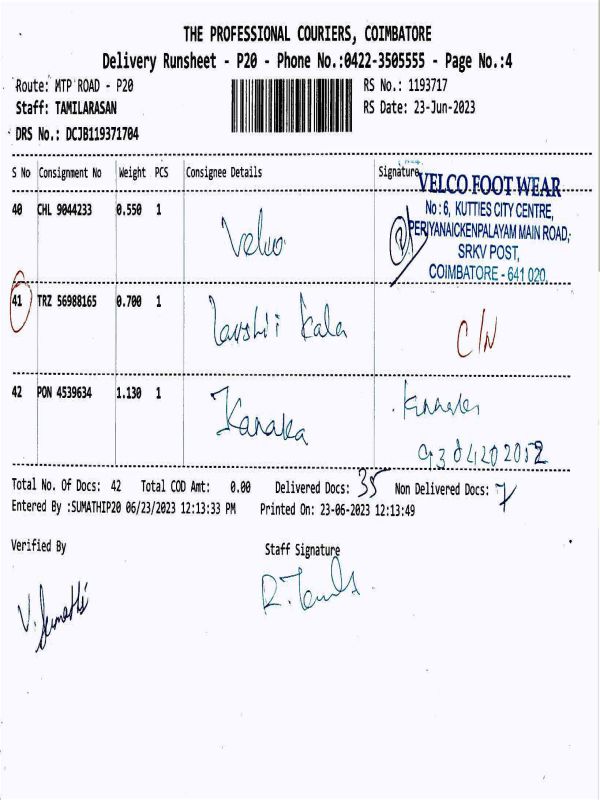 THE PROFESSIONAL COURIERS, COIMBATORE
Delivery Runsheet - P20 - Phone No.:0422-3505555 - Page No.:4
Route: MTP ROAD - P20 RS No.: 1193717
Staff: TAMILARASAN RS Date: 23-Jun-2023
DRS No.: DCJB119371704
S No Consignment No Weight PCS Consignee Details Signature
VELCO FOOT WEAR
No: 6, KUTTIES CITY CENTRE,
PERIYANAICKENPALAYAM MAIN ROAD,
SRKV POST,
COIMBATORE - 641 020.
40 CHL 9044233 0.550 1 Velco
41 TRZ 56988165 0.700 1 Kala C/N
42 PON 4539634 1.130 1 Kanaka
Total No. Of Docs: 42 Total COD Amt: 0.00 Delivered Docs: 35 Non Delivered Docs: 7
Entered By :SUMATHIP20 06/23/2023 12:13:33 PM Printed On: 23-06-2023 12:13:49
Verified By Staff Signature
V. Sumathi